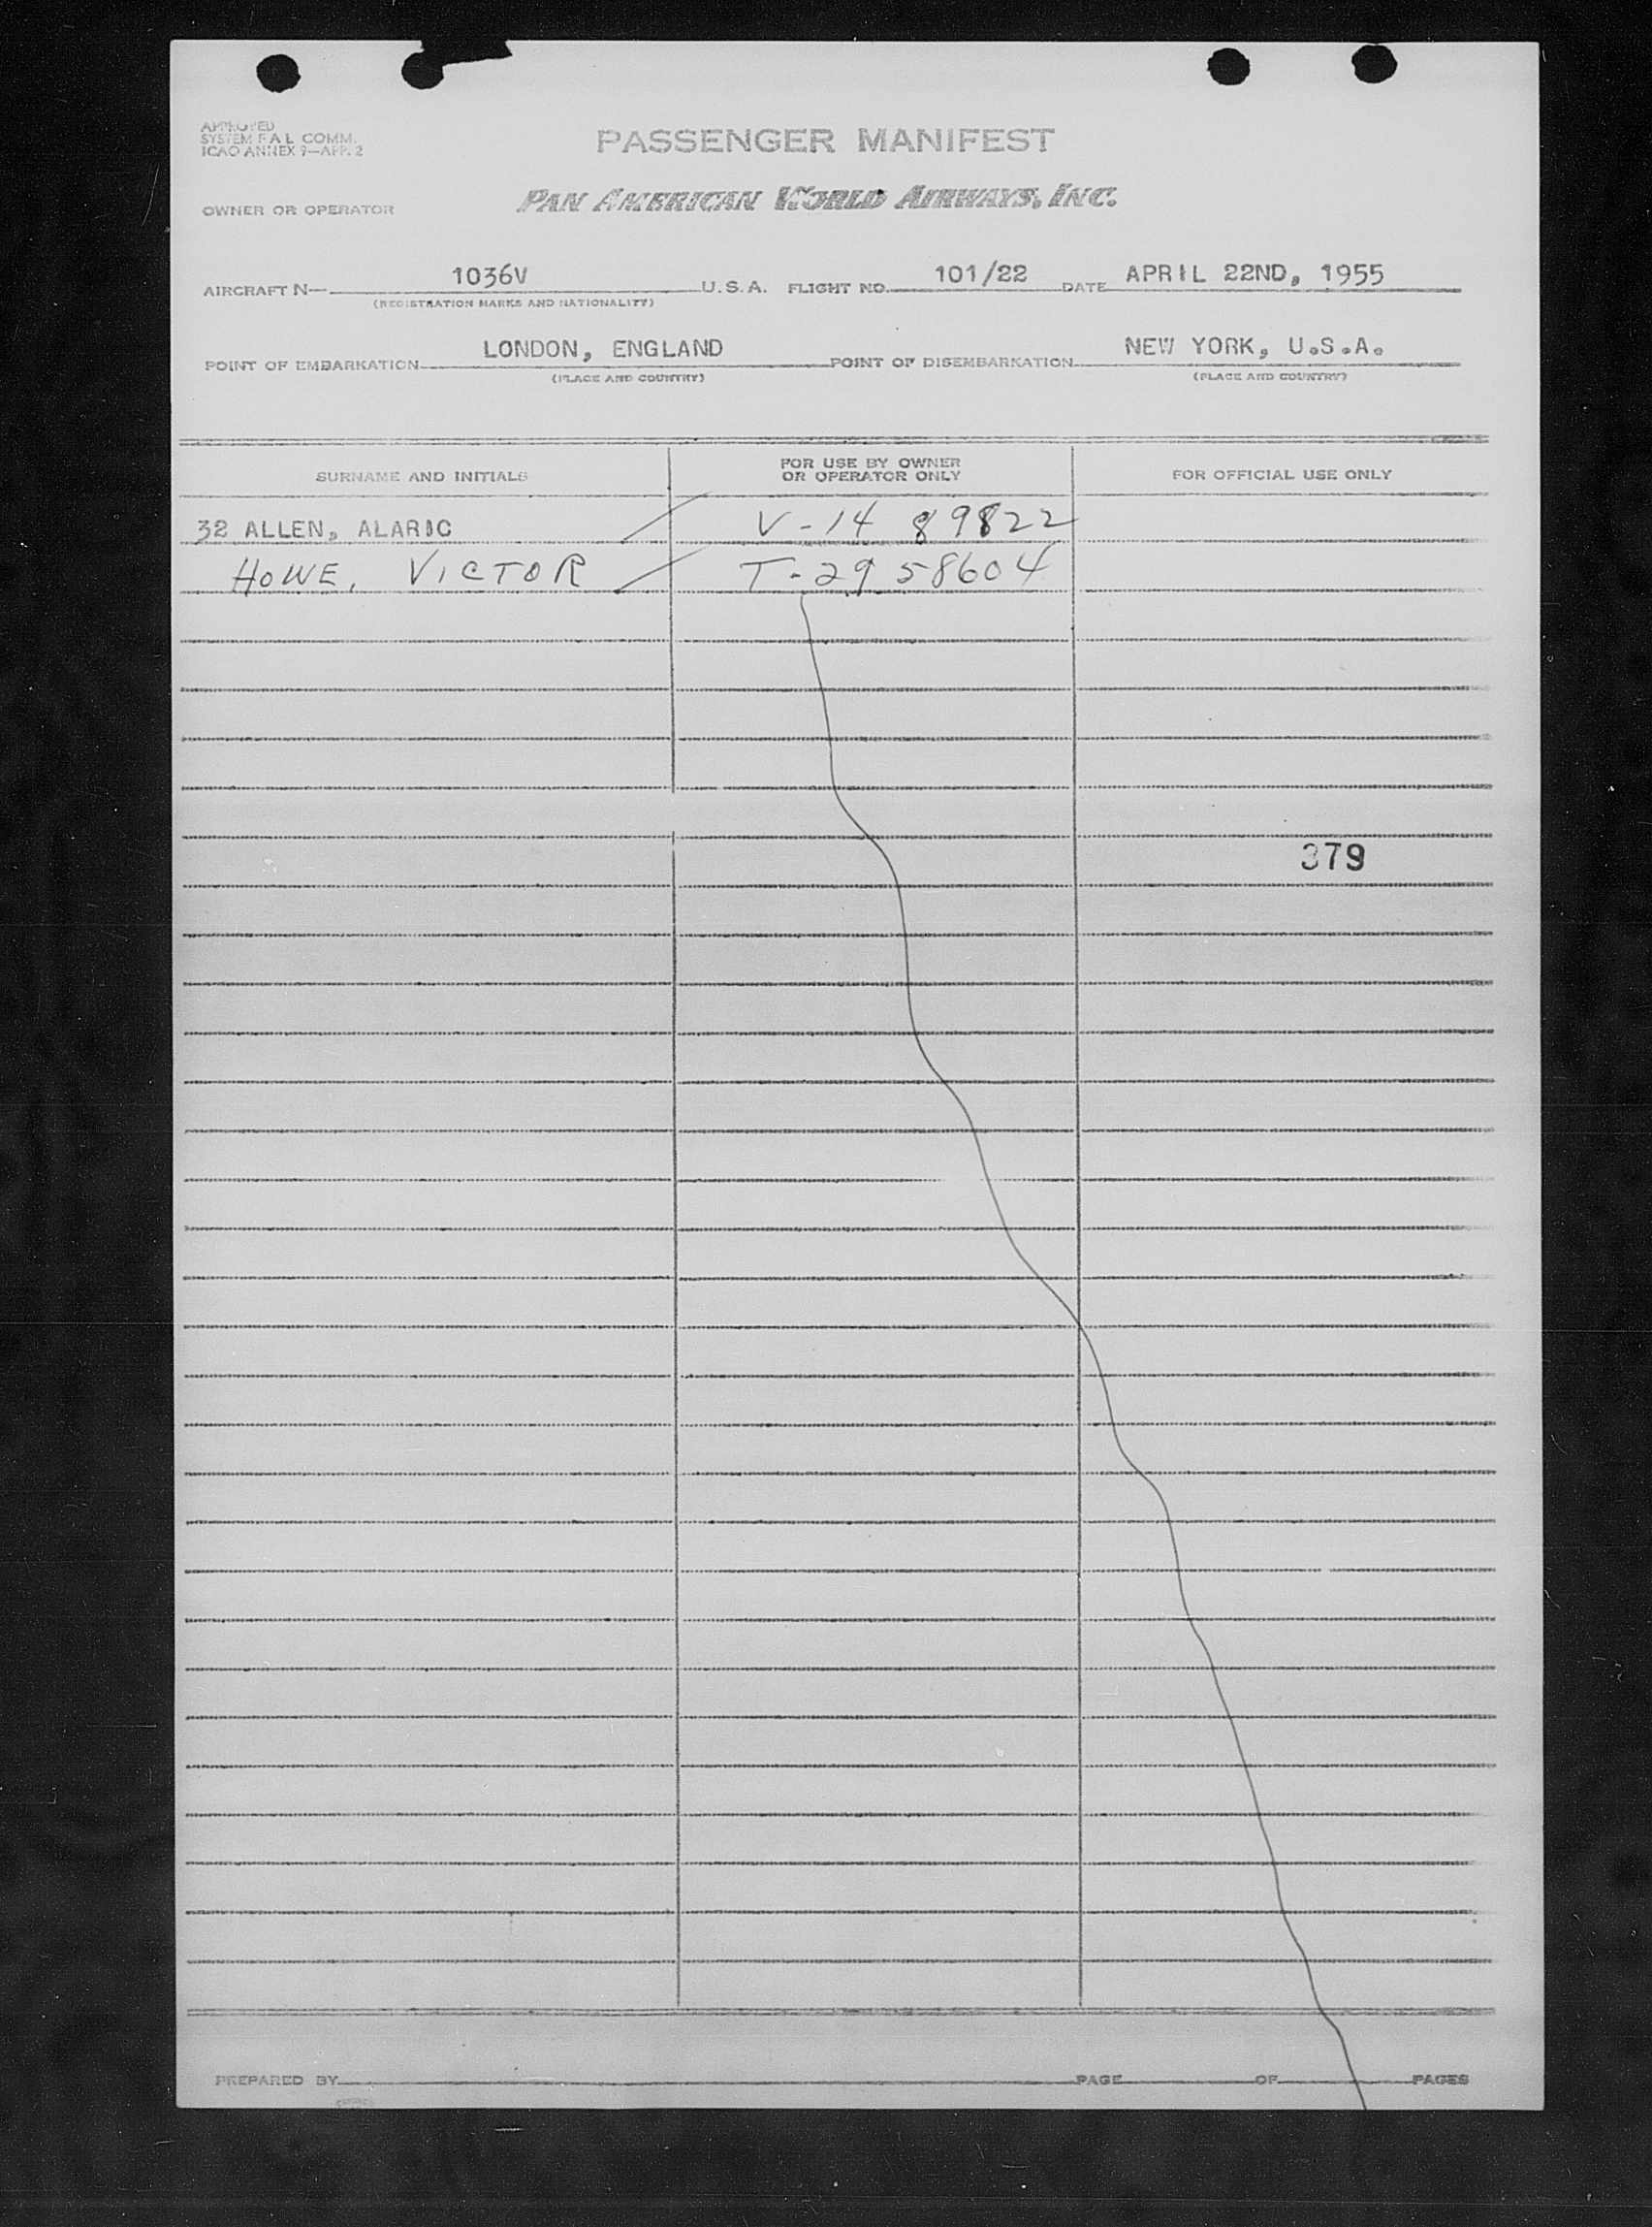 APPROVED
SYSTEM F A L COMM.
ICAO ANNEX 9—APP. 2
PASSENGER MANIFEST
OWNER OR OPERATOR PAN AMERICAN WORLD AIRWAYS, INC.
AIRCRAFT N— 1036V U.S.A. FLIGHT NO. 101/22 DATE APRIL 22ND, 1955
(REGISTRATION MARKS AND NATIONALITY)
POINT OF EMBARKATION LONDON, ENGLAND POINT OF DISEMBARKATION NEW YORK, U.S.A.
(PLACE AND COUNTRY) (PLACE AND COUNTRY)
SURNAME AND INITIALS FOR USE BY OWNER OR OPERATOR ONLY FOR OFFICIAL USE ONLY
32 ALLEN, ALARIC V-14 89822
HOWE, VICTOR T-29 58604
379
PREPARED BY PAGE OF PAGES